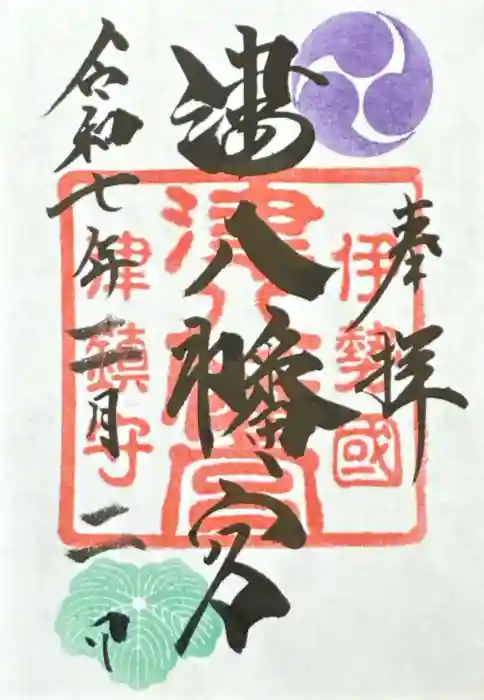 奉拝
津八幡宮
令和七年二月二日
伊勢國
津八幡宮
津鎮守